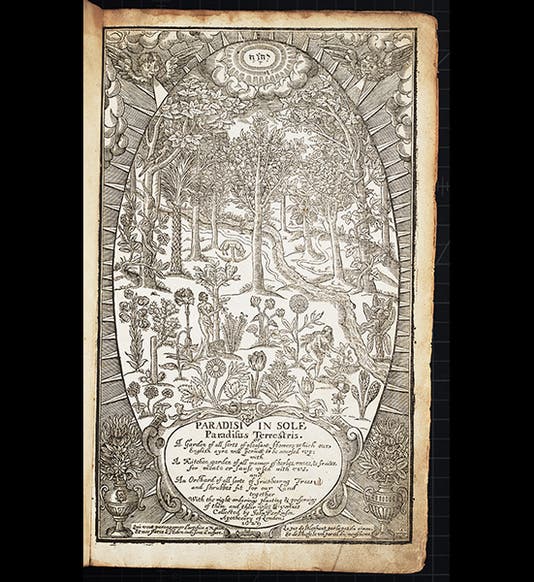 יהוה
PARADISI IN SOLE
Paradisus Terrestris.
A Garden of all sorts of pleasant flowers which our
English ayre will permitt to be noursed vp:
with
A Kitchen garden of all manner of herbes, rootes, & fruites,
for meate or sause vsed with vs,
and
An Orchard of all sorte of fruitbearing Trees
and shrubbes fit for our Land
together
With the right orderinge planting & preseruing
of them and their vses & vertues
Collected by John Parkinson
Apothecary of London
1629
Qui veut parangonner
Le pas de l'Elephant par le pas du ciron,